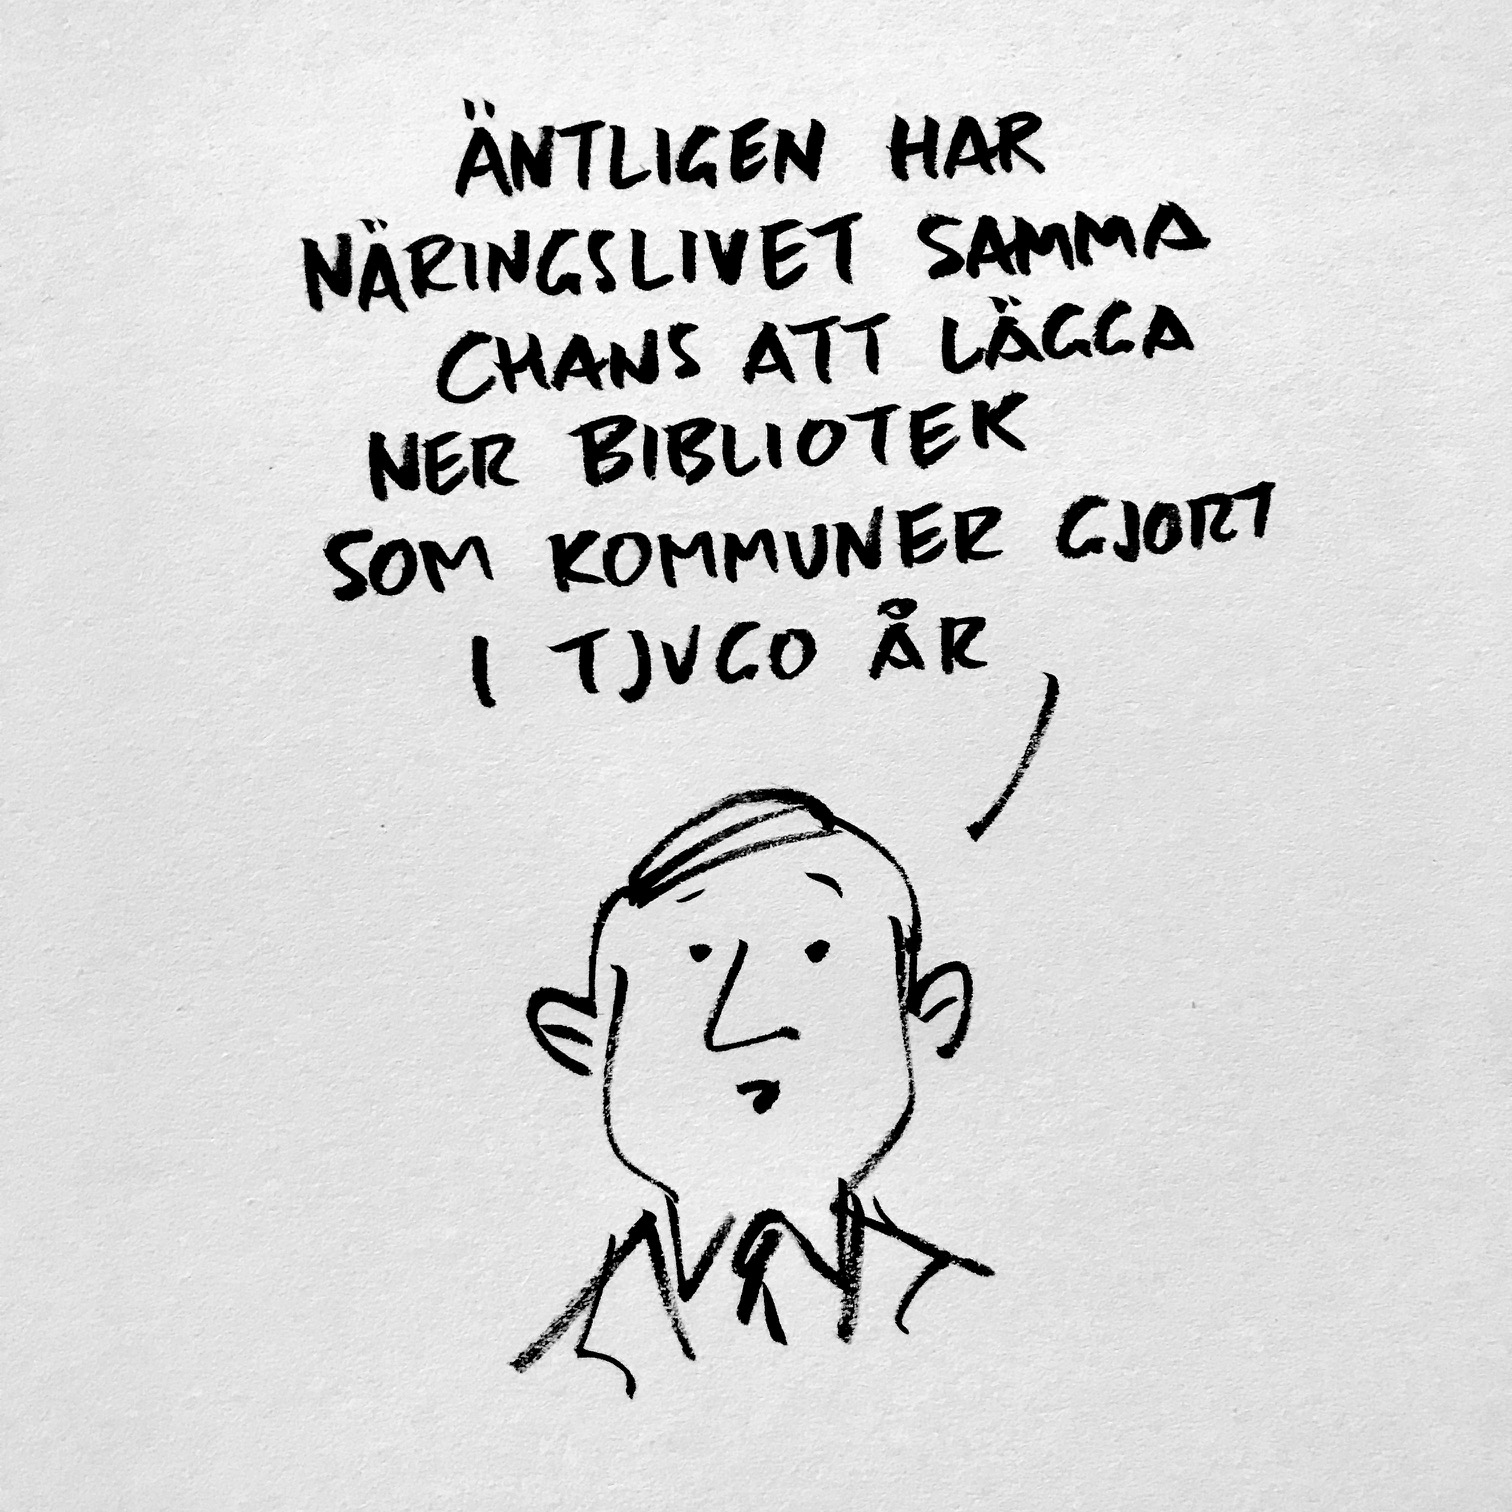 ÄNTLIGEN HAR
NÄRINGSLIVET SAMMA
CHANS ATT LÄGGA
NER BIBLIOTEK
SOM KOMMUNER GJORT
I TJUGO ÅR